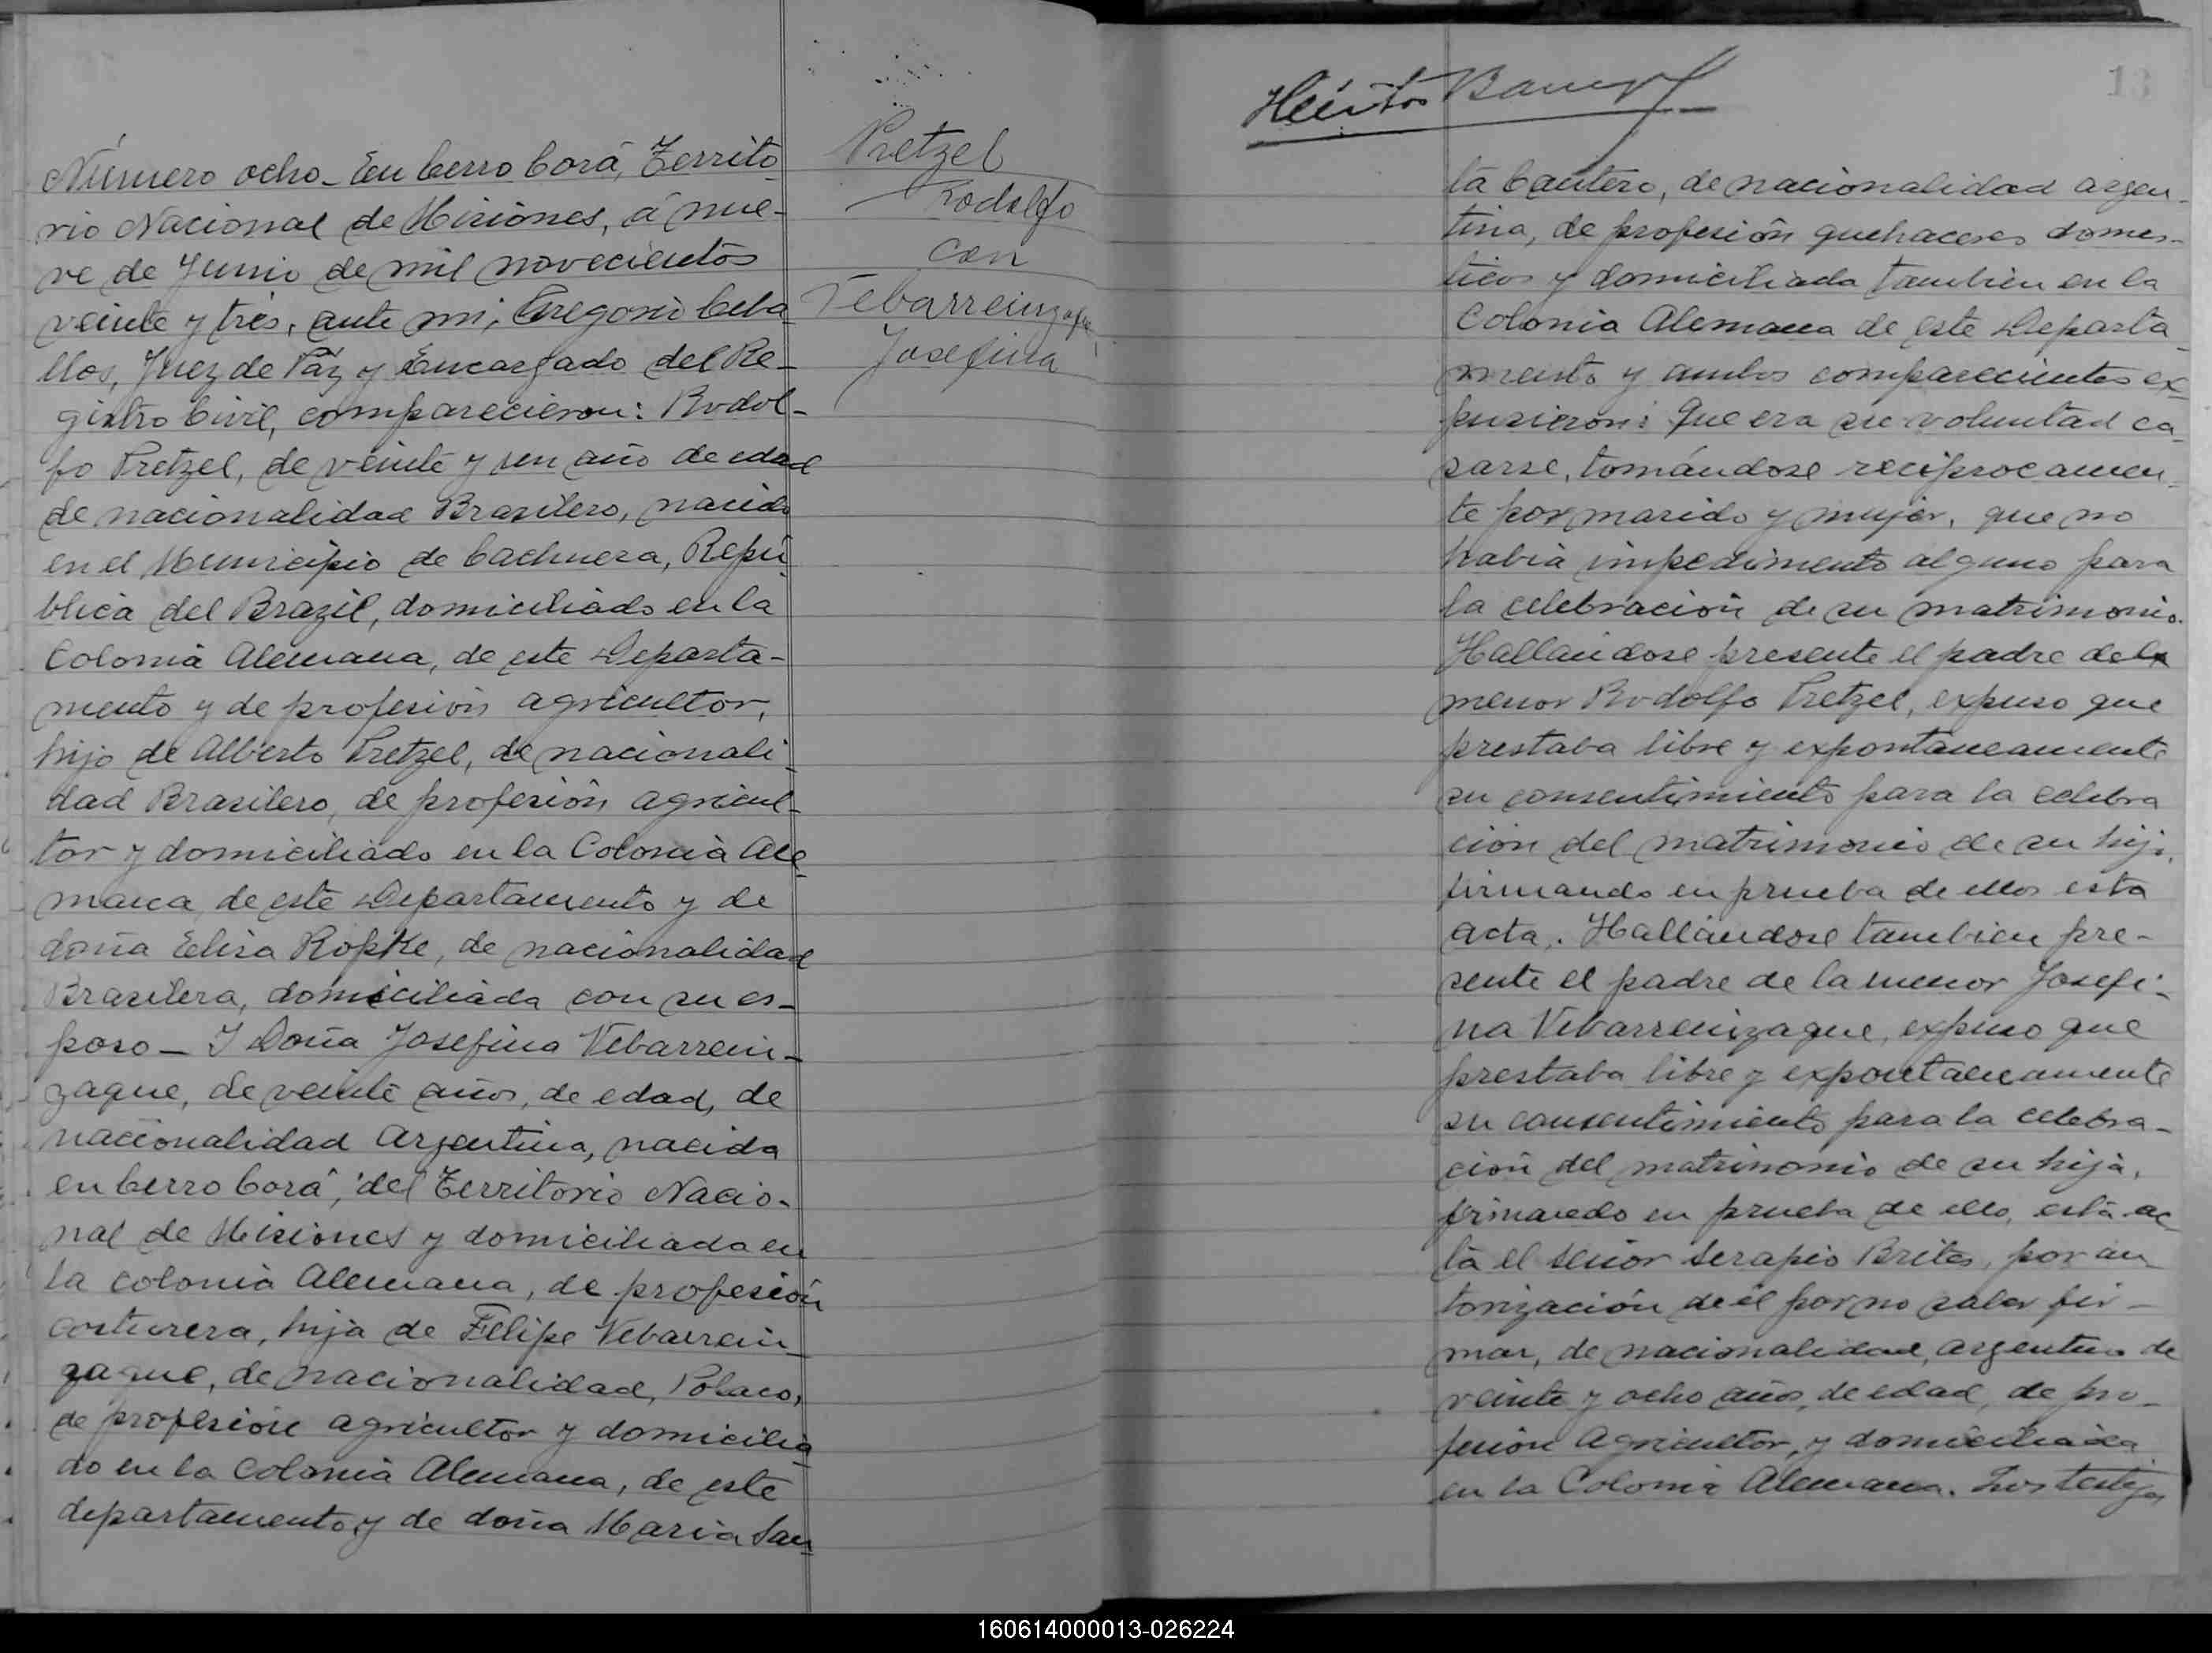 Número ocho_ En Cerro Corá, Territo-
rio Nacional de Misiones, á nue-
ve de Junio de mil novecientos
veinte y tres, ante mi, Gregorio Ceba
llos, Juez de Paz y Encargado del Re-
gistro Civil, comparecieron: Rodol-
fo Pretzel, de veinte y un año de edad
de nacionalidad Brasilero, nacido
en el Municipio de Cachuera, Repú
blica del Brazil, domiciliado en la
Colonia Alemana, de este Departa-
mento y de profesión agricultor,
hijo de Alberto Pretzel, de nacionali-
dad Brasilero, de profesión agricul-
tor y domiciliado en la Colonia Ale-
mana, de este Departamento y de
doña Elisa Ropke, de nacionalidad
Brasilera, domiciliada con su es-
poso_ I Doña Josefina Vebarrein-
zaque, de veinte años, de edad, de
nacionalidad Argentina, nacida
en Cerro Corá, del Territorio Nacio-
nal de Misiones y domiciliada en
la colonia Alemana, de profesión
costurera, hija de Felipe Vebarrein-
zaque, de nacionalidad, Polaco,
de profesión agricultor y domicilia
do en la Colonia Alemana, de este
departamento, y de doña Maria San
Pretzel
Rodolfo
con
Vebarreinzaque
Josefina
13
ta Cantero, de nacionalidad argen-
tina, de profesión quehaceres domes-
ticos y domiciliada tambien en la
Colonia Alemana de este Departa-
mento y ambos comparecientes ex-
pusieron: Que era su voluntad ca-
sarse, tomándose reciprocamen-
te por marido y mujer, que no
había impedimento alguno para
la celebración de su matrimonio.
Hallándose presente el padre del
menor Rodolfo Pretzel, expuso que
prestaba libre y expontaneamente
su consentimiento para la celebra
ción del matrimonio de su hijo,
firmando en prueba de ellos esta
acta. Hallándose tambien pre-
sente el padre de la menor Josefi-
na Vebarreinzaque, expuso que
prestaba libre y expontaneamente
su consentimiento para la celebra-
ción del matrimonio de su hija,
firmando en prueba de ello, esta ac
ta el señor Serapio Brites, por au
torización de él por no saber fir-
mar, de nacionalidad, argentino de
veinte y ocho años, de edad, de pro-
fesión Agricultor, y domiciliado
en la Colonia Alemana. Los testigos
160614000013-026224